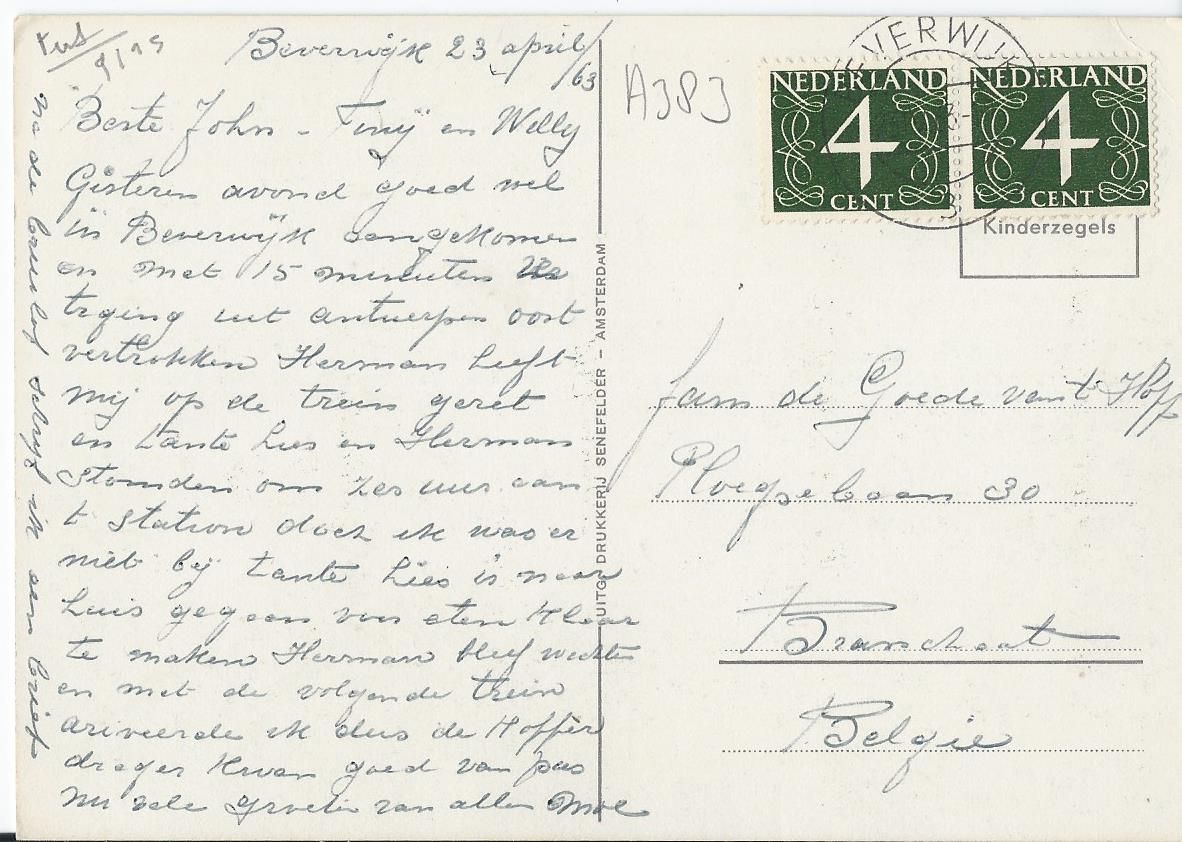 Beverwijk 23 april
/63
Beste John - Tiny en Willy
Gisteren avond goed wel
in Beverwijk aangekomen
en met 15 minuten
trging uit antwerpen oost
vertrokken Herman heeft
mij op de trein geret
en tante Lies en Herman
stonden om zes uur aan
t station doch ik was er
niet bij tante Lies is naar
huis gegaan vur eten klaar
te maken Herman bleef wachten
en met de volgende trein
ariveerde ik dus de koffer
drager kwam goed van pas
nu vele groeten van allen Moe
na de bruilof schrijf ik een brief
9/15
A383
UITG. DRUKKERIJ SENEFELDER - AMSTERDAM
BEVERWIJK
NEDERLAND
4
CENT
NEDERLAND
4
CENT
Kinderzegels
fam de Goede van't Hoff
Ploegsebaan 30
Branschaat
Belgie